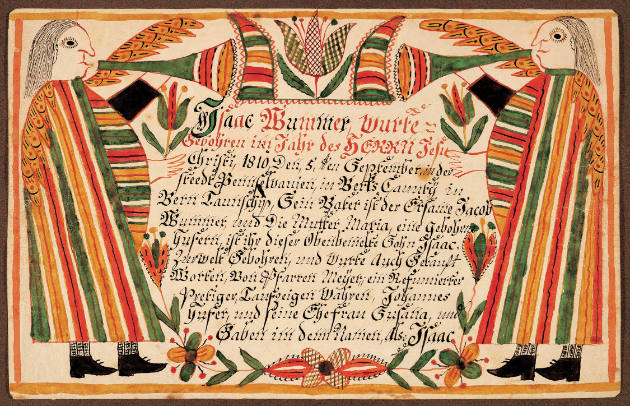 Isaac Wummer, wurde
Gebohren im Jahr des HERRN Jesu
Christi 1810, Den, 5, ten September, in der
freede Pennsilvanien, in Berks Caunty in
Bern Taunschip, Sein Vater ist der Ersame Jacob
Wummer, und Die Mutter, Maria, eine Gebohrn
Hufern, ist ihr dieser Obenbemelte Sohn Isaac.
Zurwelt Gebohren, und wurde Auch Getauft
Worten, Von Pfarren Meyer, ein Refunierter
Prediger, Taufzeigen Wahren, Johannes
Hufer, und seine Ehefrau Susana, und
Gaben im dem Namen, als, Isaac